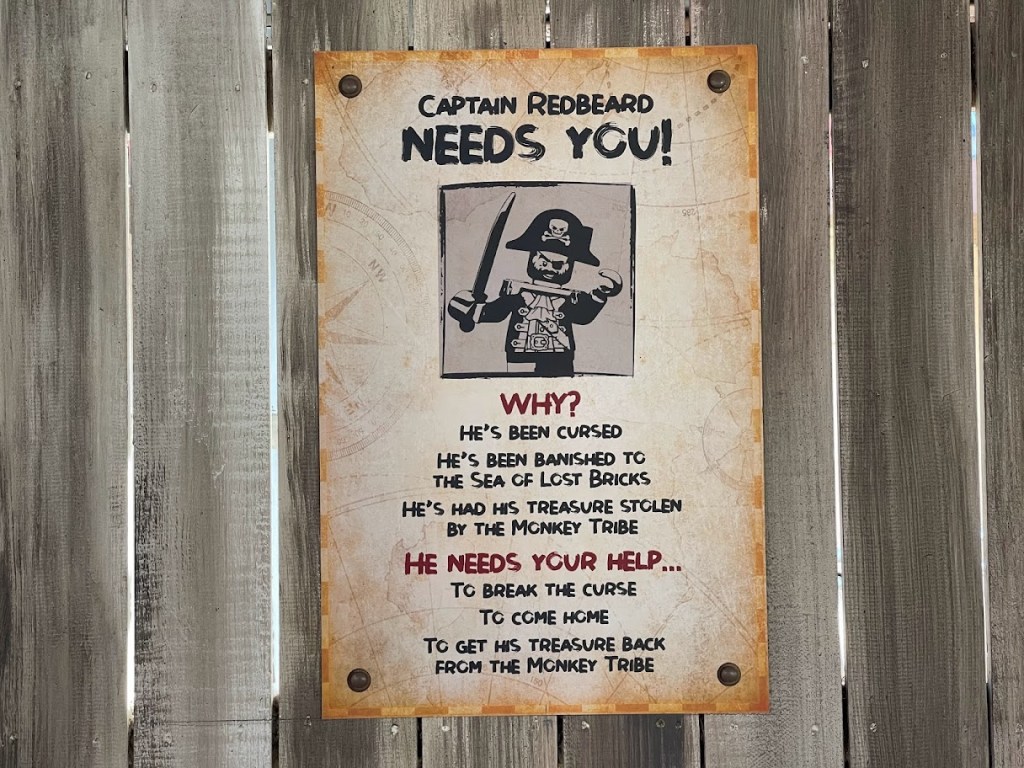 Captain Redbeard
NEEDS YOU!
WHY?
He's been cursed
He's been banished to
the Sea of Lost Bricks
He's had his treasure stolen
by the Monkey Tribe
He needs your help...
To break the curse
To come home
To get his treasure back
from the Monkey Tribe